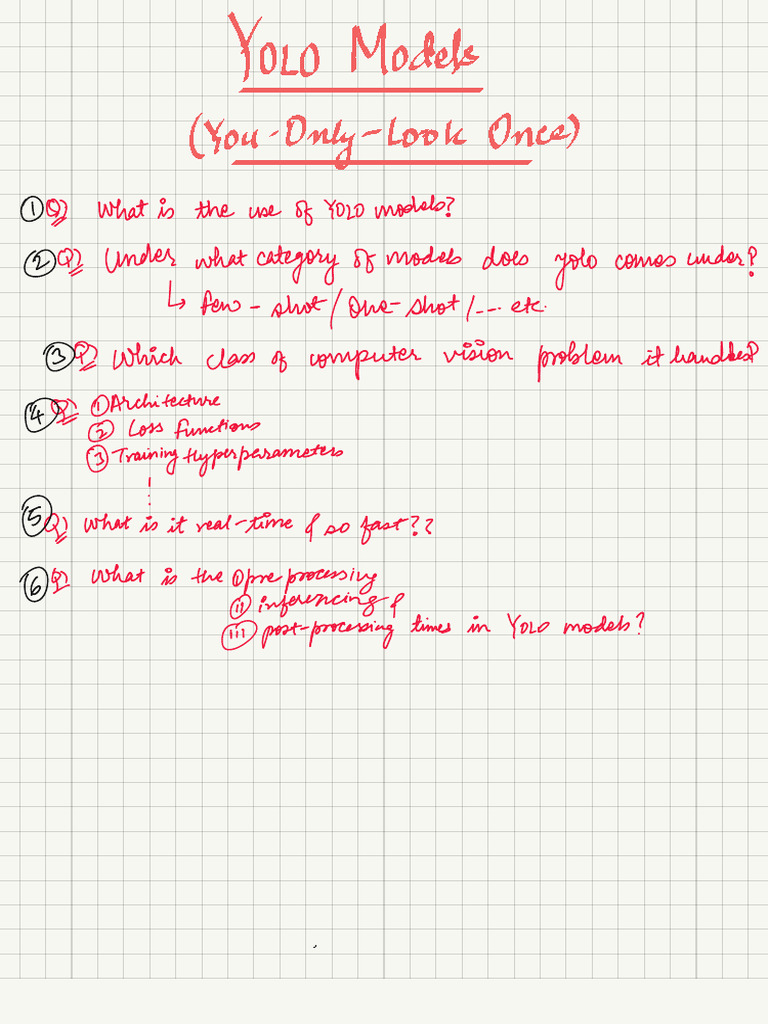 YOLO Models
(You-Only-Look Once)
① Q) What is the use of YOLO models?
② Q) Under what category of models does yolo comes under?
↳ few-shot/one-shot/... etc.
③ Q) Which class of computer vision problem it handles?
④ Q) ① Architecture
② Loss Functions
③ Training Hyperparameters
⑤ Q) What is it real-time & so fast??
⑥ Q) What is the ⓘ pre processing
ⅱ inferencing &
ⅲ post-processing times in YOLO models?